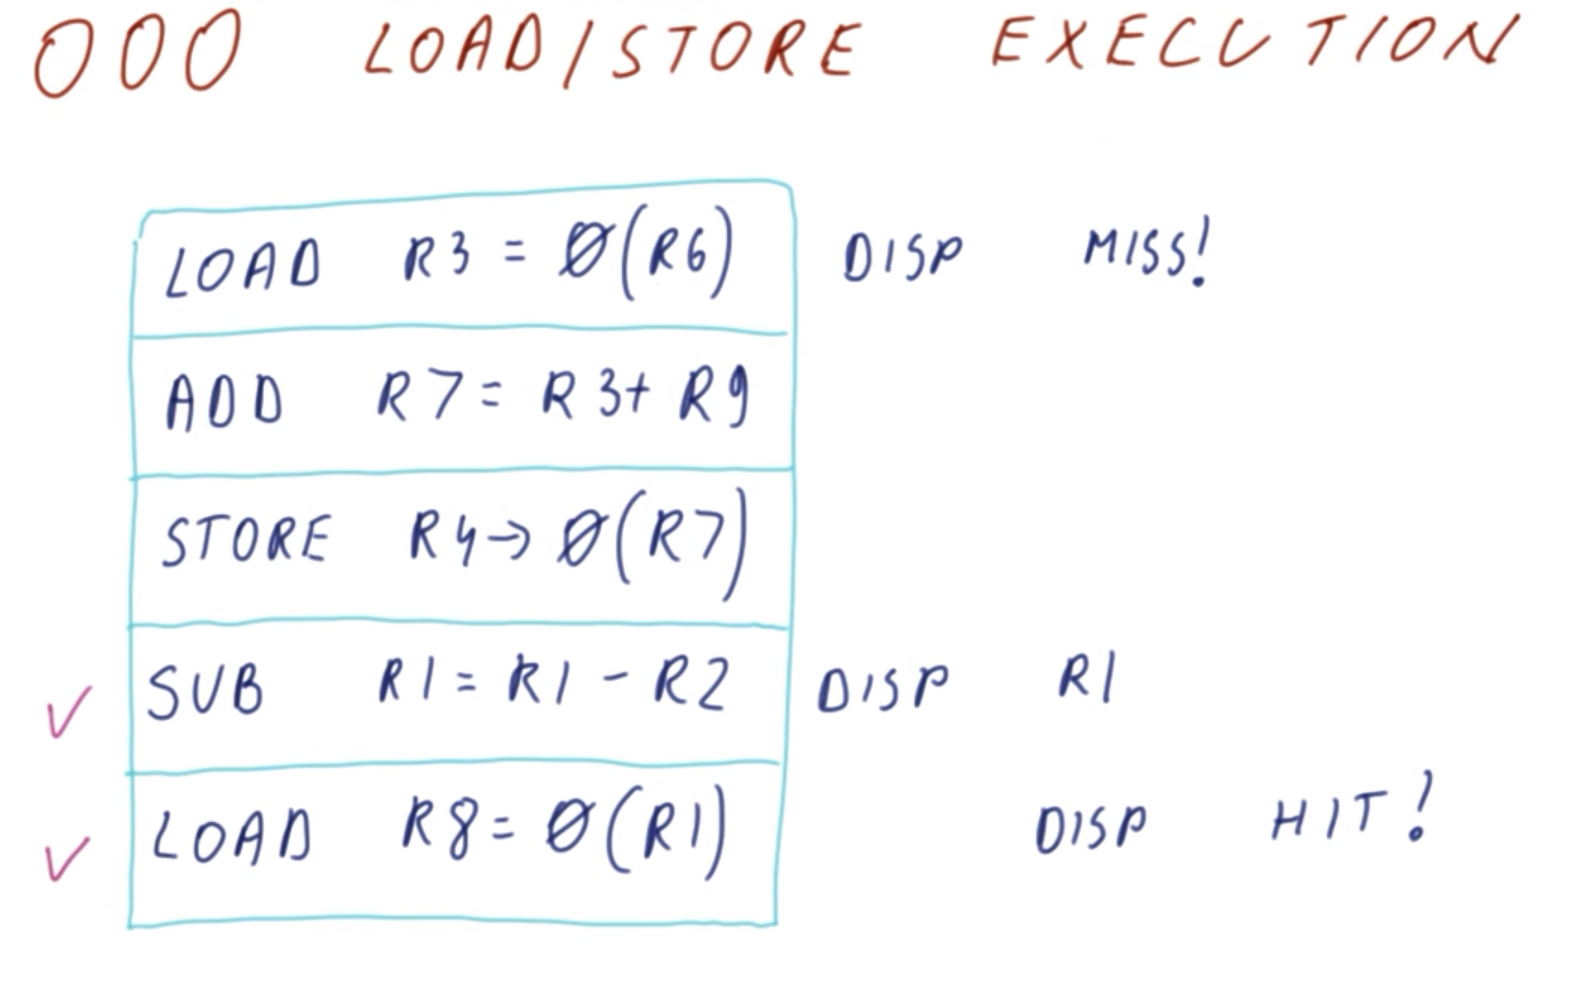 OOO LOAD/STORE EXECUTION
LOAD R3 = 0(R6) DISP MISS!
ADD R7 = R3 + R9
STORE R4 → 0(R7)
✓ SUB R1 = R1 - R2 DISP R1
✓ LOAD R8 = 0(R1) DISP HIT!